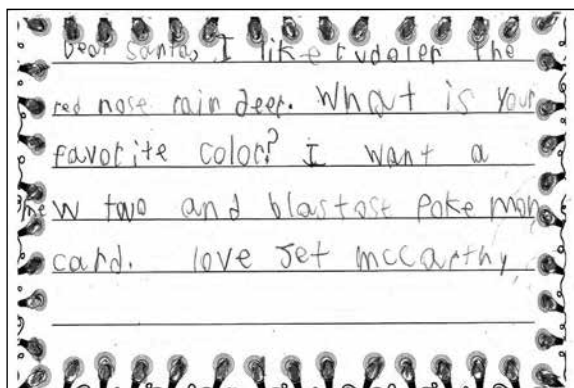 Dear Santa, I like rudoler the
red nose rain deer. What is your
favorite color? I want a
mew two and blastose Poke mon
card. love Jet mccarthy